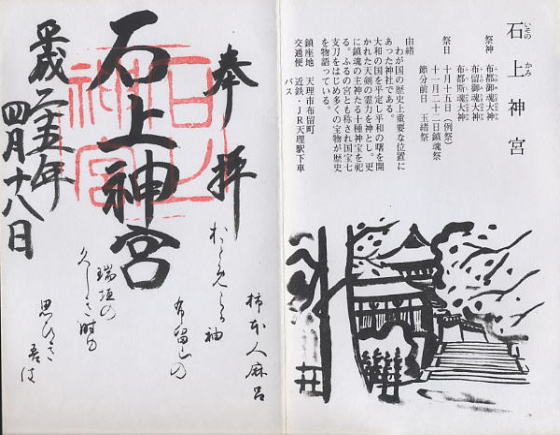 石上神宮
いそのかみ
祭神 布都御魂大神
布留御魂大神
布都斯魂大神
祭日 十月十五日(例祭)
十一月二十二日鎮魂祭
節分前日 玉緒祭
由緒
わが国の歴史上重要な位置に
あった神社である。
大和の国を平定し平和の曙を開
かれた天剣の霊力を神とし。更
に鎮魂の主神たる十種神宝を祀
る。ふるの宮とも称され国宝七
支刀をはじめ多くの宝物が歴史
を物語っている。
鎮座地 天理市布留町
交通便 近鉄・JR天理駅下車
バス
奉拝
石上神宮
平成二十五年
四月十八日
柿本人麻呂
袖
布留山の
瑞垣の
久しき時の
思ひき
吾は